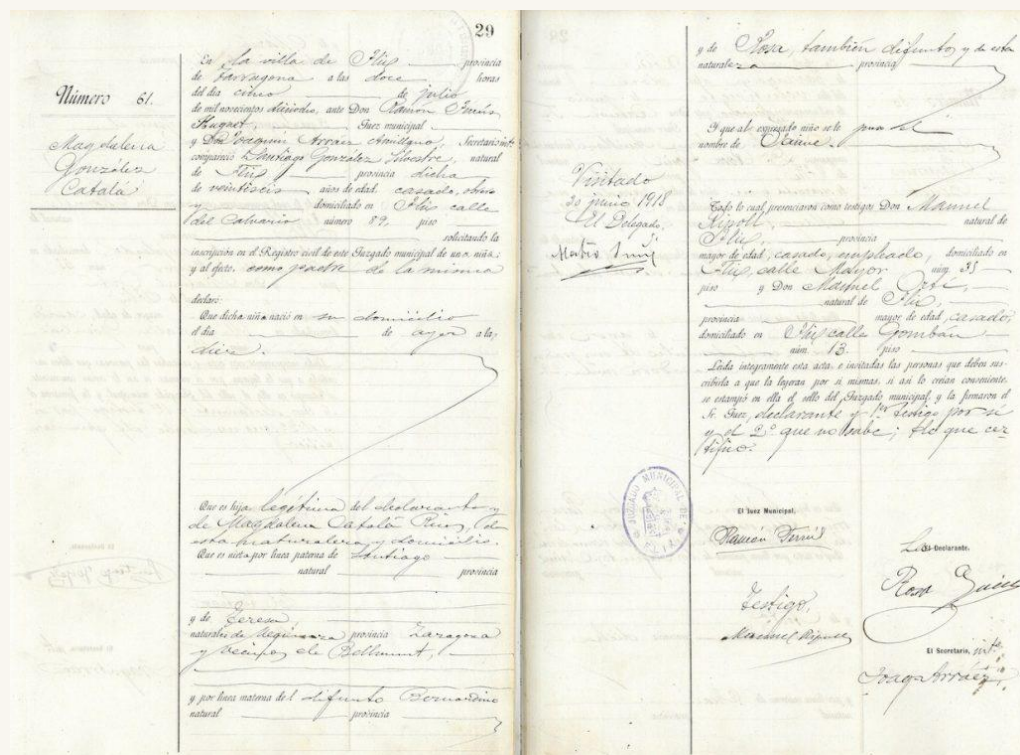 29
Número 61.
Magdalena
González
Catalá
En la villa de Flix provincia
de Tarragona a las doce horas
del día cinco de julio
de mil novecientos dieciocho, ante Don Ramón
Juez municipal
y Don Joaquín Arráez Secretario intº
comparece Santiago González Silvestre, natural
de Flix provincia dicha
de veintiseis años de edad, casado,
domiciliado en Flix calle
del Calvario número 89, piso
solicitando la
inscripción en el Registro civil de este Juzgado municipal de una niña;
y al efecto, como padre de la misma
declaró:
Que dicha niña nació en su domicilio
el día de ayer a las
diez.
Que es hija legítima del declarante y
de Magdalena Catalá de
esta naturaleza y domicilio.
Que es nieta por línea paterna de Santiago
natural provincia
y de Teresa,
naturales de Mequinenza provincia Zaragoza
y vecinos de Bellmunt,
y por línea materna del difunto Bernardino
natural provincia
y de Rosa, también difunta y de esta
naturaleza provincia
Y que al expresado niño se le
nombre de
Visitado
30 junio 1918
El Delegado,
Todo lo cual presenciaron como testigos Don Manuel
Ripoll natural de
Flix, provincia
mayor de edad, casado, empleado, domiciliado en
Flix, calle Mayor núm. 35
piso y Don Manuel
natural de Flix,
provincia mayor de edad, casado,
domiciliado en Flix calle
núm. 13 piso
Leída íntegramente esta acta, e invitadas las personas que deben sus-
cribirla a que la leyeran por sí mismas, si así lo creían conveniente,
se estampó en ella el sello del Juzgado municipal, y la firmaron el
Sr. Juez, declarante y 1er testigo por sí
y el 2º que no sabe; de lo que cer-
tifico.
JUZGADO MUNICIPAL DE FLIX
El Juez Municipal,
Ramón
Declarante.
Rosa
Testigo,
Manuel Ripoll
El Secretario, intº
Joaqn Arráez